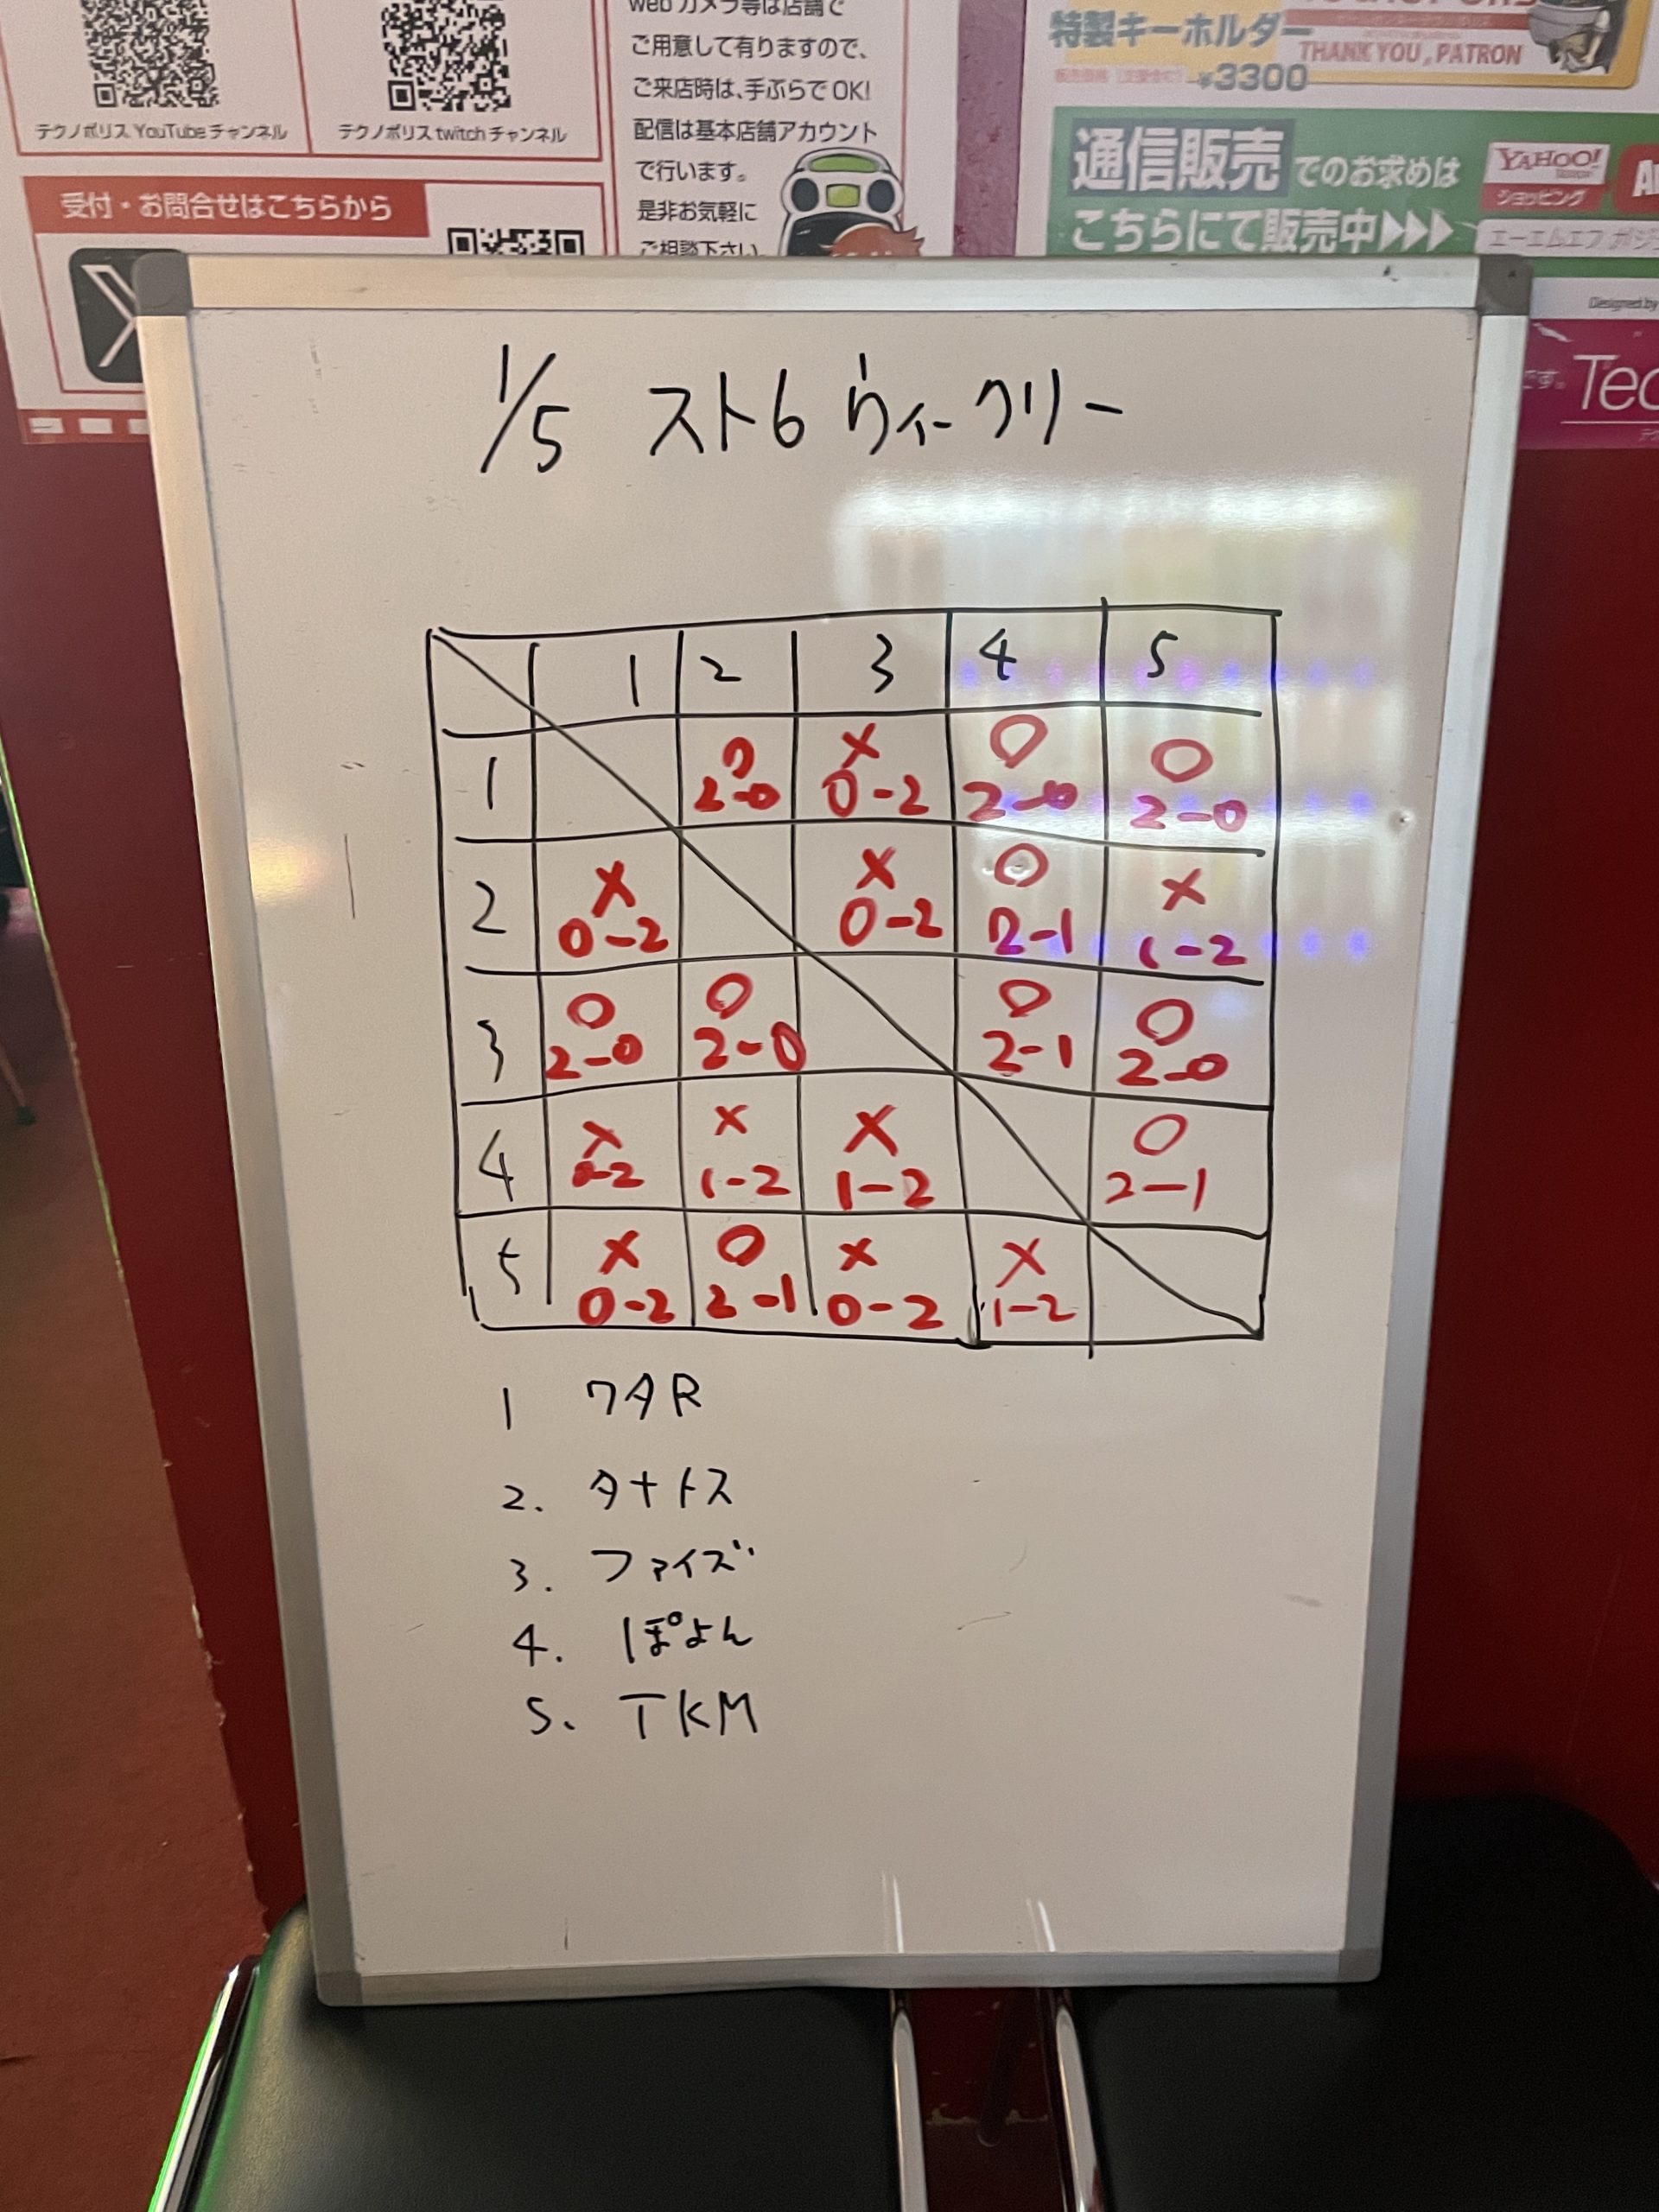 web カメラ等は店舗で
ご用意して有りますので、
ご来店時は、手ぶらでOK!
配信は基本店舗アカウント
で行います。
是非お気軽に
ご相談下さい。
テクノポリス YouTube チャンネル
テクノポリス twitch チャンネル
受付・お問合せはこちらから
特製キーホルダー
¥3300
THANK YOU, PATRON
通信販売でのお求めは
こちらにて販売中▶▶▶
YAHOO!
ショッピング
Designed by
です。
Tec
1/5 スト6 ウィークリー
1 2 3 4 5
1 ○ 2-0 × 0-2 ○ 2-0 ○ 2-0
2 × 0-2 × 0-2 ○ 2-1 × 1-2
3 ○ 2-0 ○ 2-0 ○ 2-1 ○ 2-0
4 × 0-2 × 1-2 × 1-2 ○ 2-1
5 × 0-2 ○ 2-1 × 0-2 × 1-2
1 ワタR
2. タナトス
3. ファイズ
4. ぽよん
5. TKM